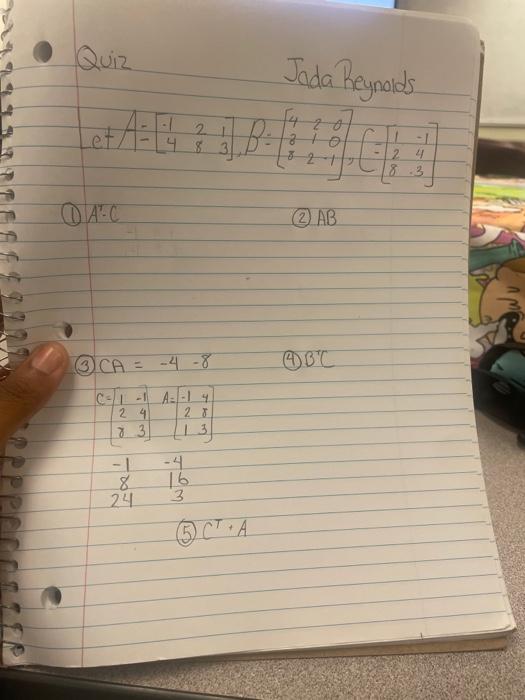 Quiz
Jada Reynolds
Let A = [-1 2 1
4 8 3], B = [4 2 0
3 1 0
8 2 -1], C = [1 -1
2 4
8 -3]
① Aᵀ-C
② AB
③ CA = -4 -8
④ BᵀC
C = [1 -1 A = [-1 4
2 4 2 8
8 3] 1 3]
-1 -4
8 16
24 3
⑤ Cᵀ + A